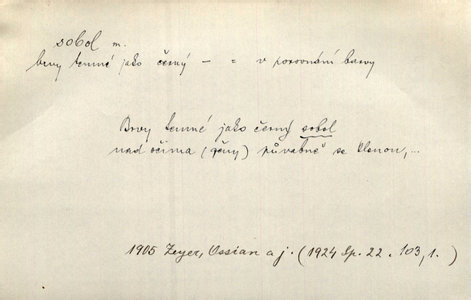 sobol m.
brvy temné jako černý — = v porovnání barvy
Brvy temné jako černý sobol
nad očima (ženy) půvabně se klenou,...
1905 Zeyer, Ossian a j. (1924 Sp. 22. 103, 1.)